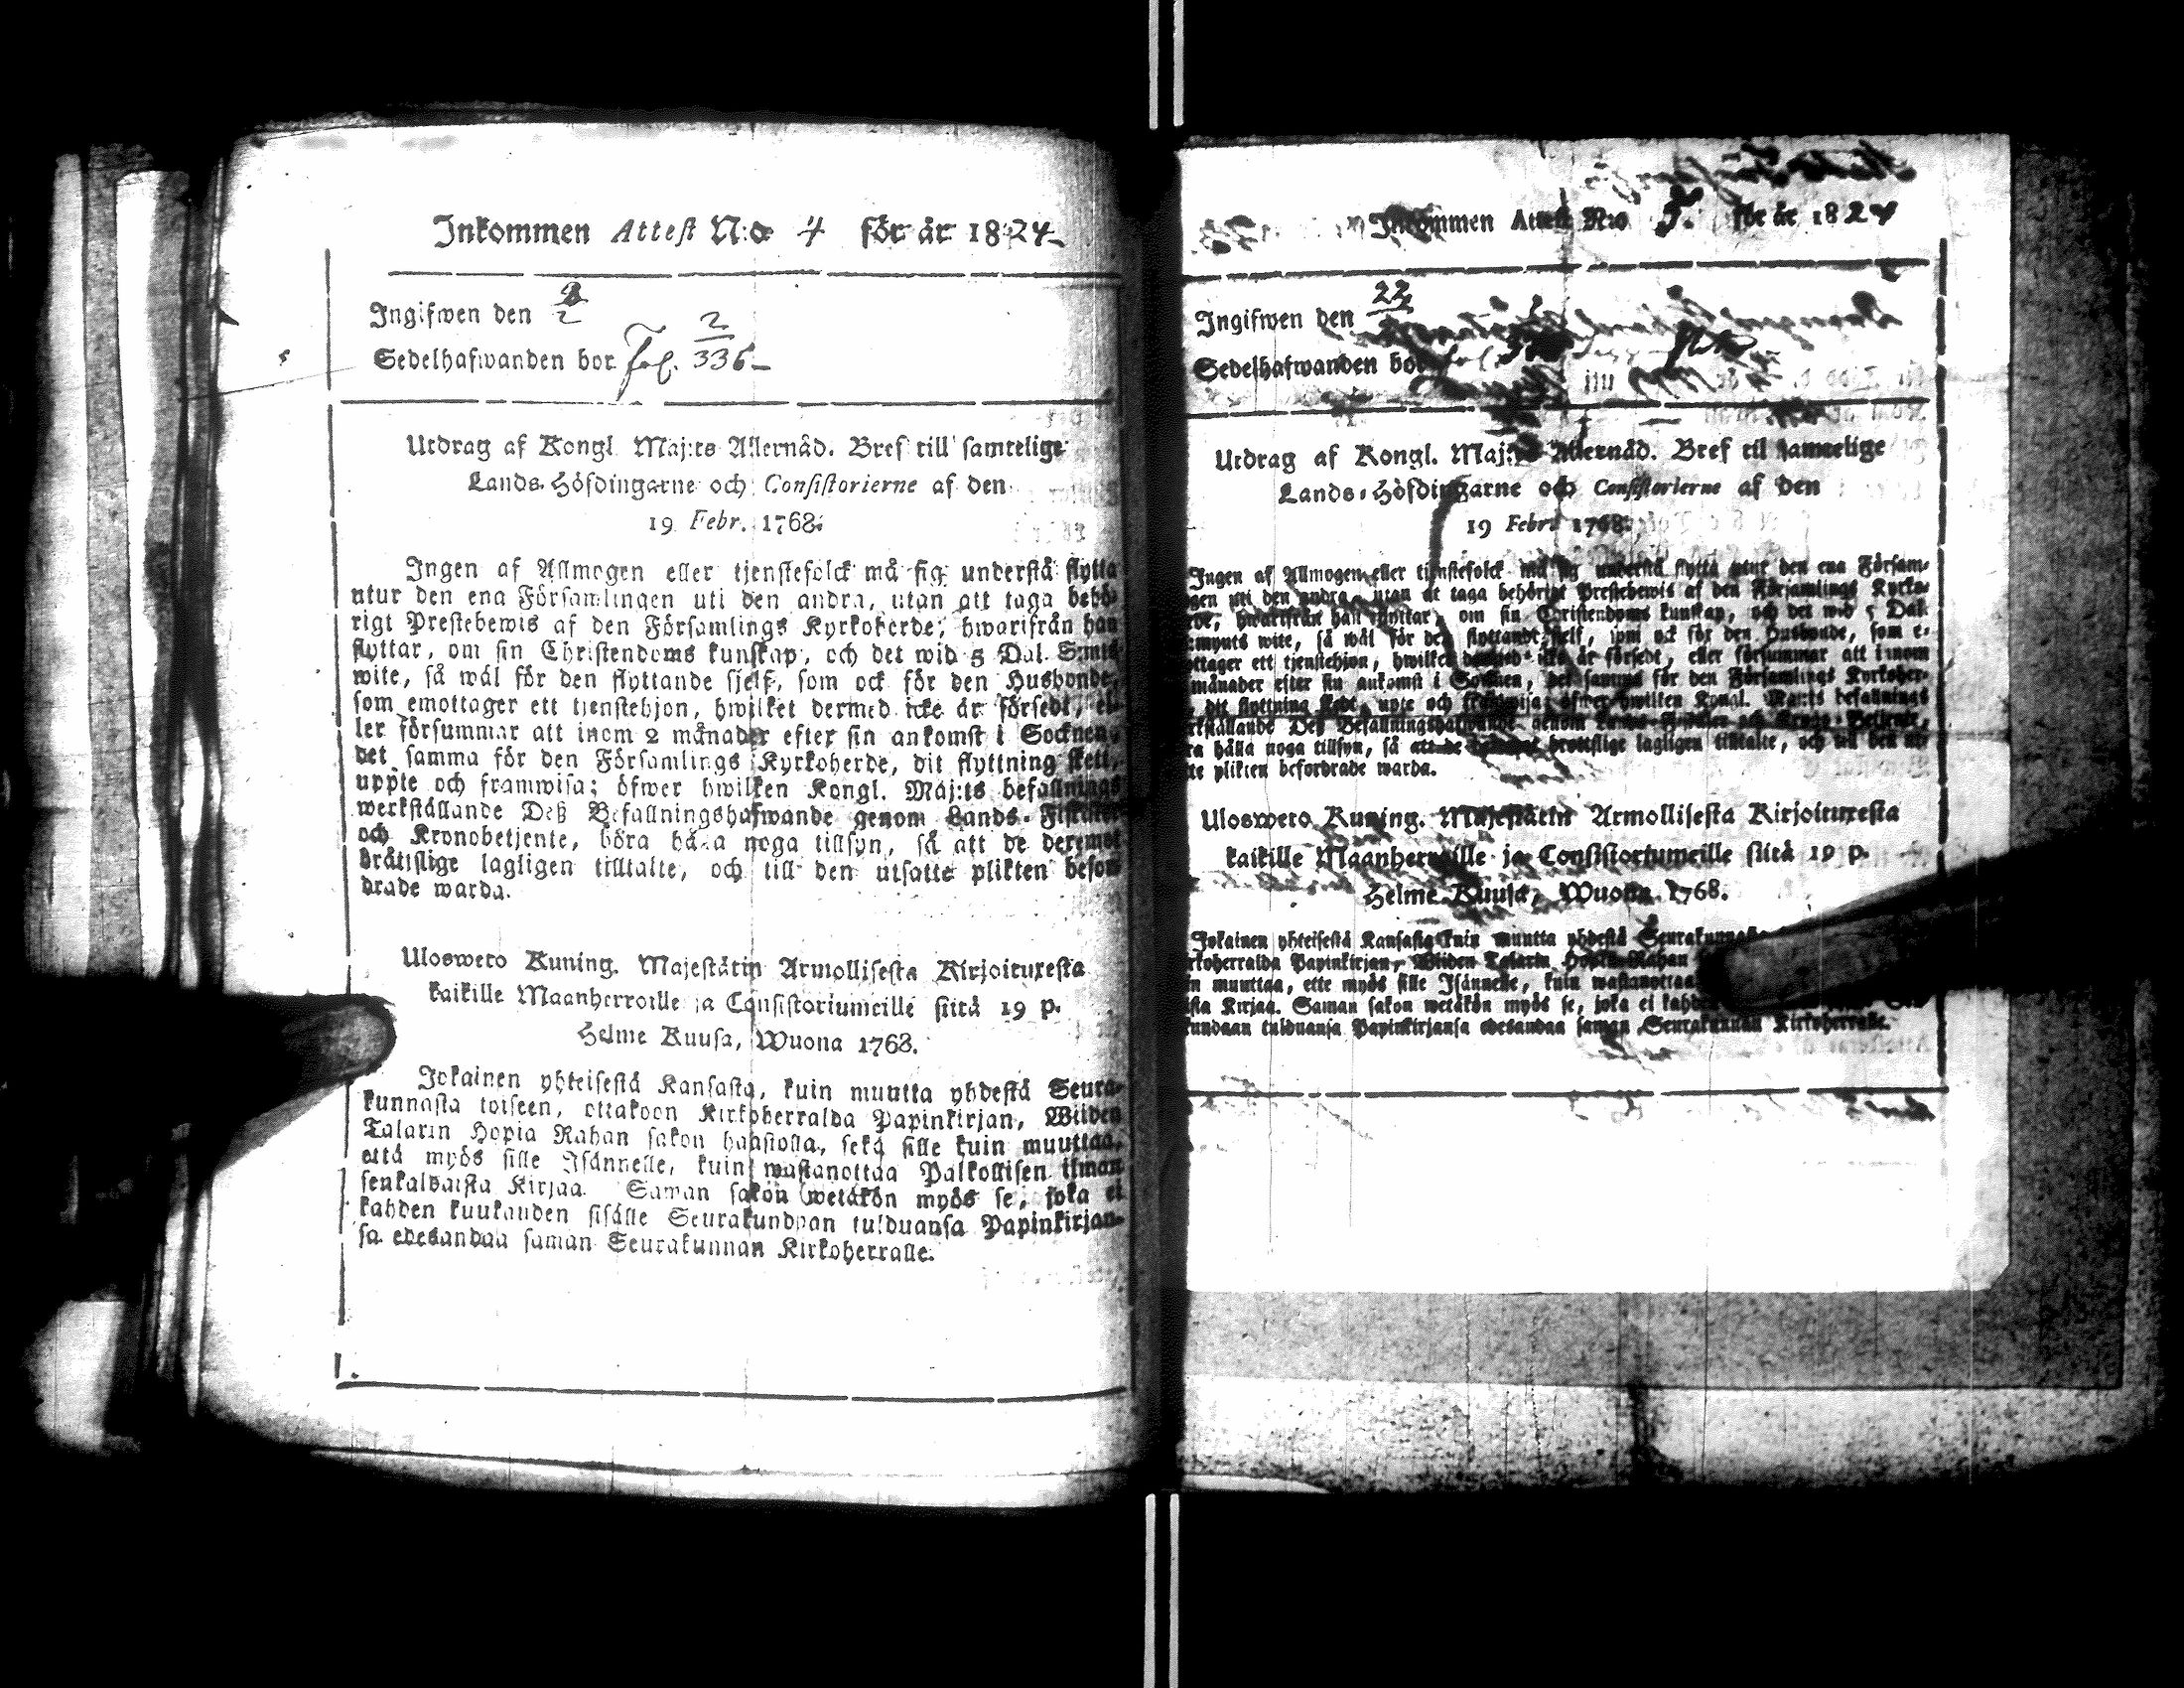 Inkommen Attest N:o 4 för år 1824
Ingifwen den
Sedelhafwanden bor fol. 2/336
Utdrag af Kongl. Maj:ts Allernåd. Bref till samtelige
Lands-Höfdingarne och Consistorierne af den
19 Febr. 1768.
Ingen af Allmogen eller tjenstefolck må sig understå flytta
utur den ena Församlingen uti den andra, utan att taga behö-
rigt Prestebewis af den Församlings Kyrkoherde, hwarifrån han
flyttar, om sin Christendoms kunskap, och det wid 5 Dal. S:mts
wite, så wäl för den flyttande sjelf, som ock för den Husbonde,
som emottager ett tjenstehjon, hwilket dermed icke är försedt, el-
ler försummar att inom 2 månader efter sin ankomst i Socknen,
det samma för den Församlings Kyrkoherde, dit flyttning skett,
uppte och framwisa; öfwer hwilken Kongl. Maj:ts befallnings
werkställande Deß Befallningshafwande genom Lands-Fiskaler
och Kronobetjente, böra hålla noga tillsyn, så att de deremot
bråttslige lagligen tilltalte, och till den utsatte plikten befor-
drade warda.
Uloswето Kuning. Majestätin Armollisesta Kirjoituxesta
kaikille Maanherroille ja Consistoriumeille siitä 19 p.
Helme Kuusa, Wuona 1768.
Jokainen yhteisestä Kansasta, kuin muutta yhdestä Seura-
kunnasta toiseen, ottakoon Kirkoherralda Papinkirjan, Wiiden
Talarin Hopia Rahan sakon haastolla, sekä sille kuin muuttaa,
että myös sille Isännelle, kuin wastanottaa Palkollisen ilman
senkaldaista Kirjaa. Saman sakon wetäkön myös se, joka ei
kahden kuukauden sisälle Seurakundaan tulduansa Papinkirjan-
sa edesandaa saman Seurakunnan Kirkoherralle.
Inkommen Attest N:o 5. för år 1824
Ingifwen den 22/2
Sedelhafwanden bor fol.
Utdrag af Kongl. Maj:ts Allernåd. Bref til samtelige
Lands-Höfdingarne och Consistorierne af den
19 Febr. 1768.
Ingen af Allmogen eller tjenstefolck må sig understå flytta utur den ena Försam-
gen uti den andra, utan at taga behörigt Prestebewis af den Församlings Kyrko-
rde, hwarifrån han flyttar, om sin Christendoms kunskap, och det wid 5 Dal.
mynts wite, så wäl för den flyttande sjelf, som ock för den Husbonde, som e-
ottager ett tjenstehjon, hwilket dermed icke är försedt, eller försummar att innom
månader efter sin ankomst i Socknen, det samma för den Församlings Kyrkoher-
dit flyttning skedt, upte och framwisa; öfwer hwilken Kongl. Maj:ts befallnings
rkställande Deß Befallningshafwande genom Lands-Fiskaler och Krono-Betjente,
ra hålla noga tillsyn, så att de brottslige lagligen tilltalte, och till den
te plikten befordrade warda.
Uloswето Kuning. Majestätin Armollisesta Kirjoituxesta
kaikille Maanherroille ja Consistoriumeille siitä 19 p.
Helme Kuusa, Wuona 1768.
Jokainen yhteisestä Kansasta kuin muutta yhdestä Seurakunnasta
rkoherralda Papinkirjan, Wiiden Talarin Hopia Rahan
n muuttaa, ette myös sille Isännelle, kuin wastanottaa
ista Kirjaa. Saman sakon wetäkön myös se, joka ei kahden
kundaan tulduansa Papinkirjansa edesandaa saman Seurakunnan Kirkoherralle.